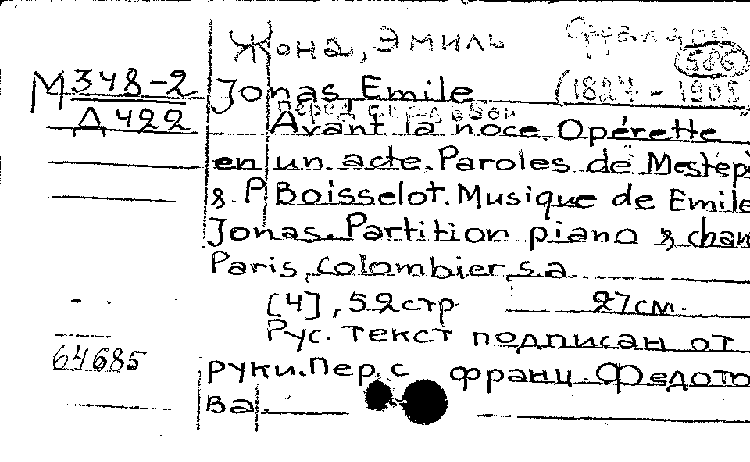 Жона, Эмиль
586
М348-2 Jonas Emile (1827-1905
Д422 Перед свадьбой
Avant la noce. Opérette
en un acte. Paroles de Mestep
& P Boisselot. Musique de Emile
Jonas. Partition piano & chan
Paris, Colombier, s.a.
[4], 52стр 27см.
Рус. текст подписан от
64685
руки. Пер. с франц. Федото
ва.